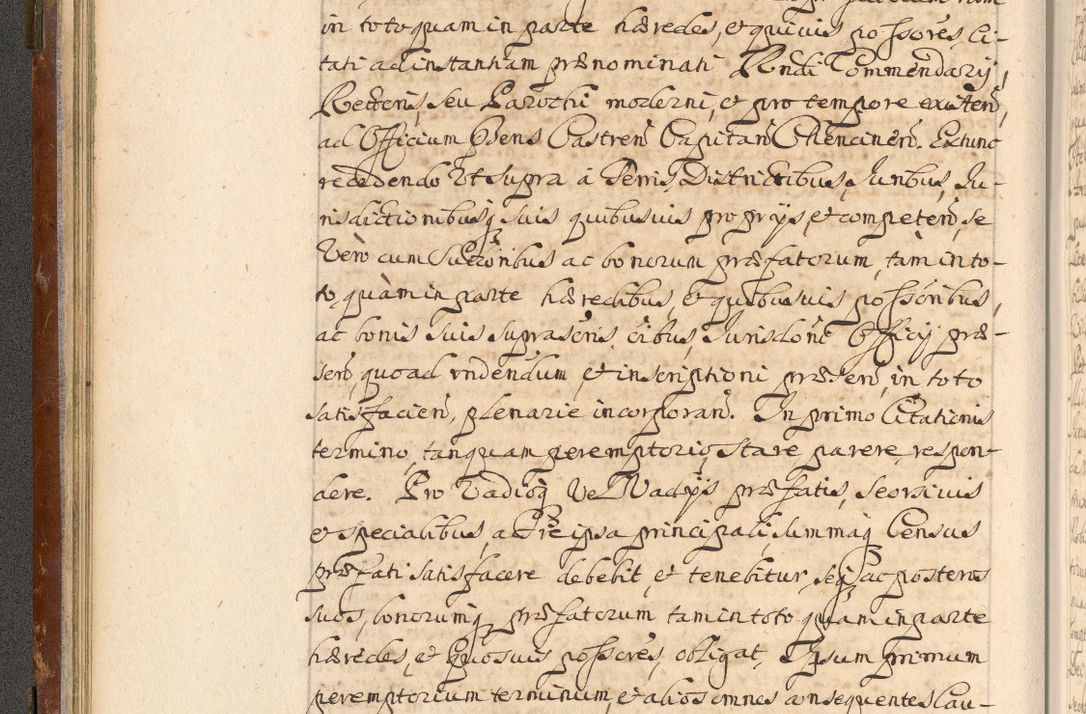 in toto quam in parte hæredes, et quivis possores, Ci-
tati ad instantiam prænominati Rndi Commendarij,
Rectoris, seu Parochi moderni, et pro tempore existen,
ad Officium Pdens Castren Capitan Chencinen. Extunc
recedendo Ut supra á Terris, Districtibus, Juribus, Ju-
risdictionibusq suis quibusvis proprijs, et competen, se
Vero cum Succoribus ac bonorum præfatorum, tàm in to-
to, quàm in parte hæredibus, et quibusvis possoribus,
ac bonis suis suprascris, oibus, Jurisdoni Officij præ-
sen, quoad indendum, et inscriptioni præsen, in toto
satisfacien, plenarie incorporan. In primo Citationis
termino, tanquam peremptorio, stare parere, respon-
dere. Pro Vadioq Vel Vadijs præfatis, seorsivis
et specialibus, ac Pro re ipsa principali, summaq Census
præfati satisfacere debebit, et tenebitur, seq, ac posteros
suos, bonorumq præfatorum tam in toto quam in parte
hæredes, et quosvis possores, obligat, Ipsum primum
peremptorium terminum, et alios omnes consequentes Cau-